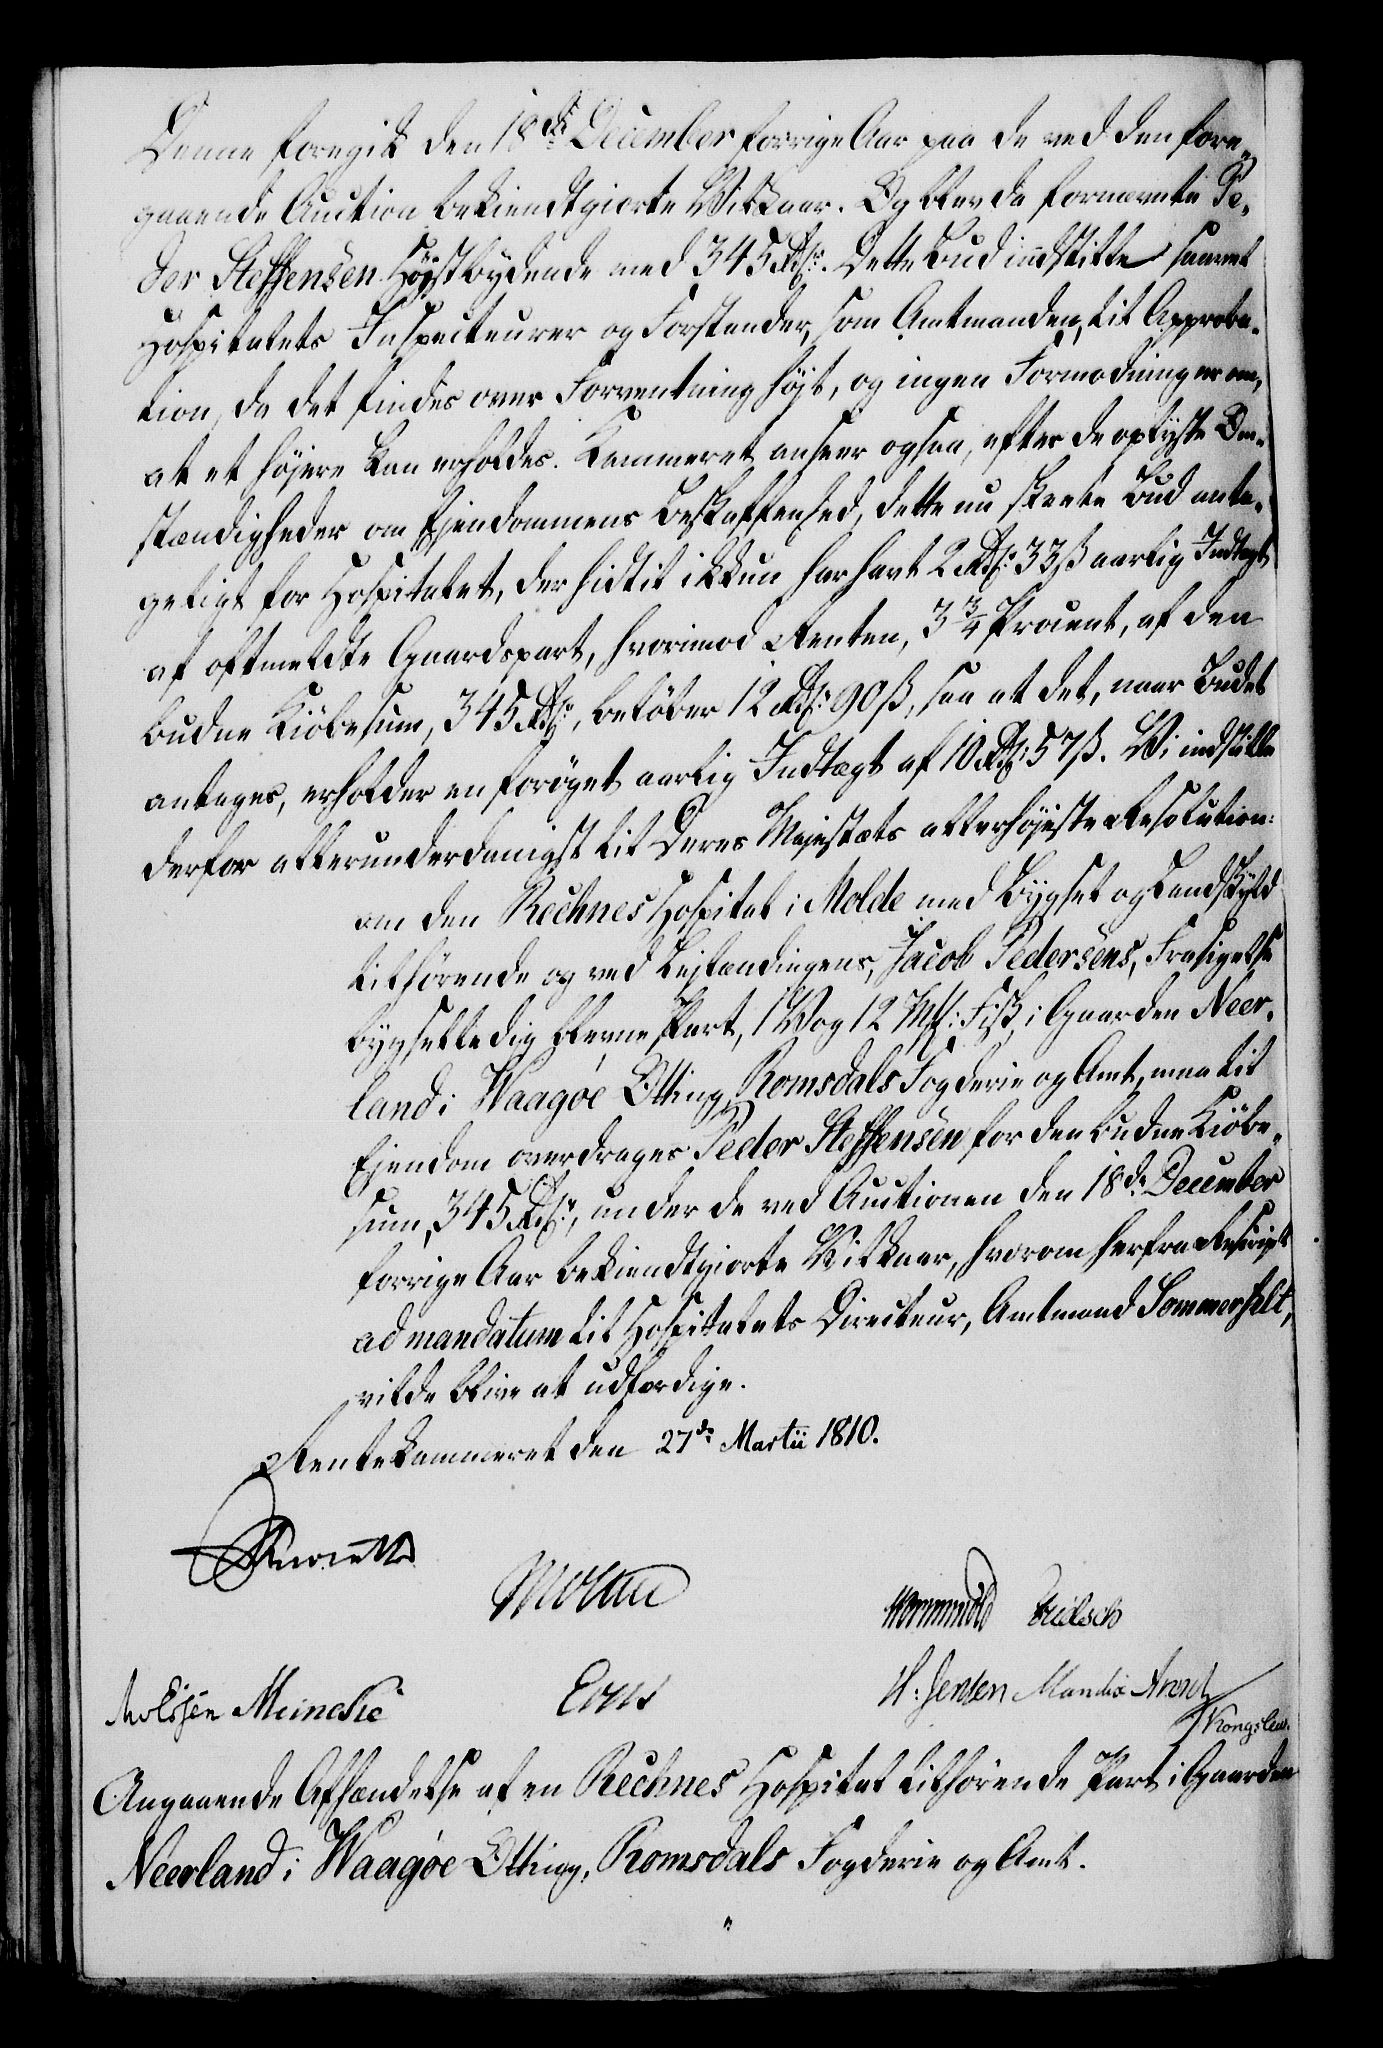 Denne foregik den 18de December forrige Aar paa de ved den fore-
gaaende Auction bekiendtgiorte Vilkaar. Og blev da fornævnte Pe-
der Steffensen Højstbydende med 345 Rdlr. Dette Bud indstille saavel
Hospitalets Inspecteurer og Forstander, som Amtmanden, til Approba-
tion, da det findes over Forventning højt, og ingen Formodning er om,
at et højere kan erholdes. Kammeret anseer ogsaa, efter de oplyste Om-
stændigheder om Ejendommens Beskaffenhed, dette nu skeete Bud anta-
geligt for Hospitalet, der hidtil ikkun har havt 2 Rdlr: 33 ß aarlig Indtægt
af oftmeldte Gaardspart, hvorimod Renten, 3 3/4 Procent, af den
budne Kiöbesum, 345 Rdlr, beløber 12 Rdlr: 90 ß, saa at det, naar Budet
antages, erholder en forøget aarlig Indtægt af 10 Rdlr: 57 ß. Vi indstille
derfor allerunderdanigst til Deres Majestæts allerhøjeste Resolution:
om den Rechnes Hospital i Molde med Bygsel og Landskyld
tilhørende og ved Lejlændingens, Jacob Pedersens, Frasigelse
bygselledig blevne Part, 1 Vog 12 Mk: Fisk, i Gaarden Neer-
land i Waagøe Otting, Romsdals Fogderie og Amt, maa til
Ejendom overdrages Peder Steffensen for den budne Kiöbe-
sum, 345 Rdlr, under de ved Auctionen den 18de December
forrige Aar bekiendtgiorte Vilkaar, hvorom herfra Rescript
ad mandatum til Hospitalets Directeur, Amtmand Sommerfelt,
vilde blive at udfærdige.
Rentekammeret den 27de Martii 1810.
Knuth
Wormskiold
Munche
H: Jensen
Angaaende Afhændelse af en Rechnes Hospital tilhørende Part i Gaarden
Neerland i Waagøe Otting, Romsdals Fogderie og Amt.